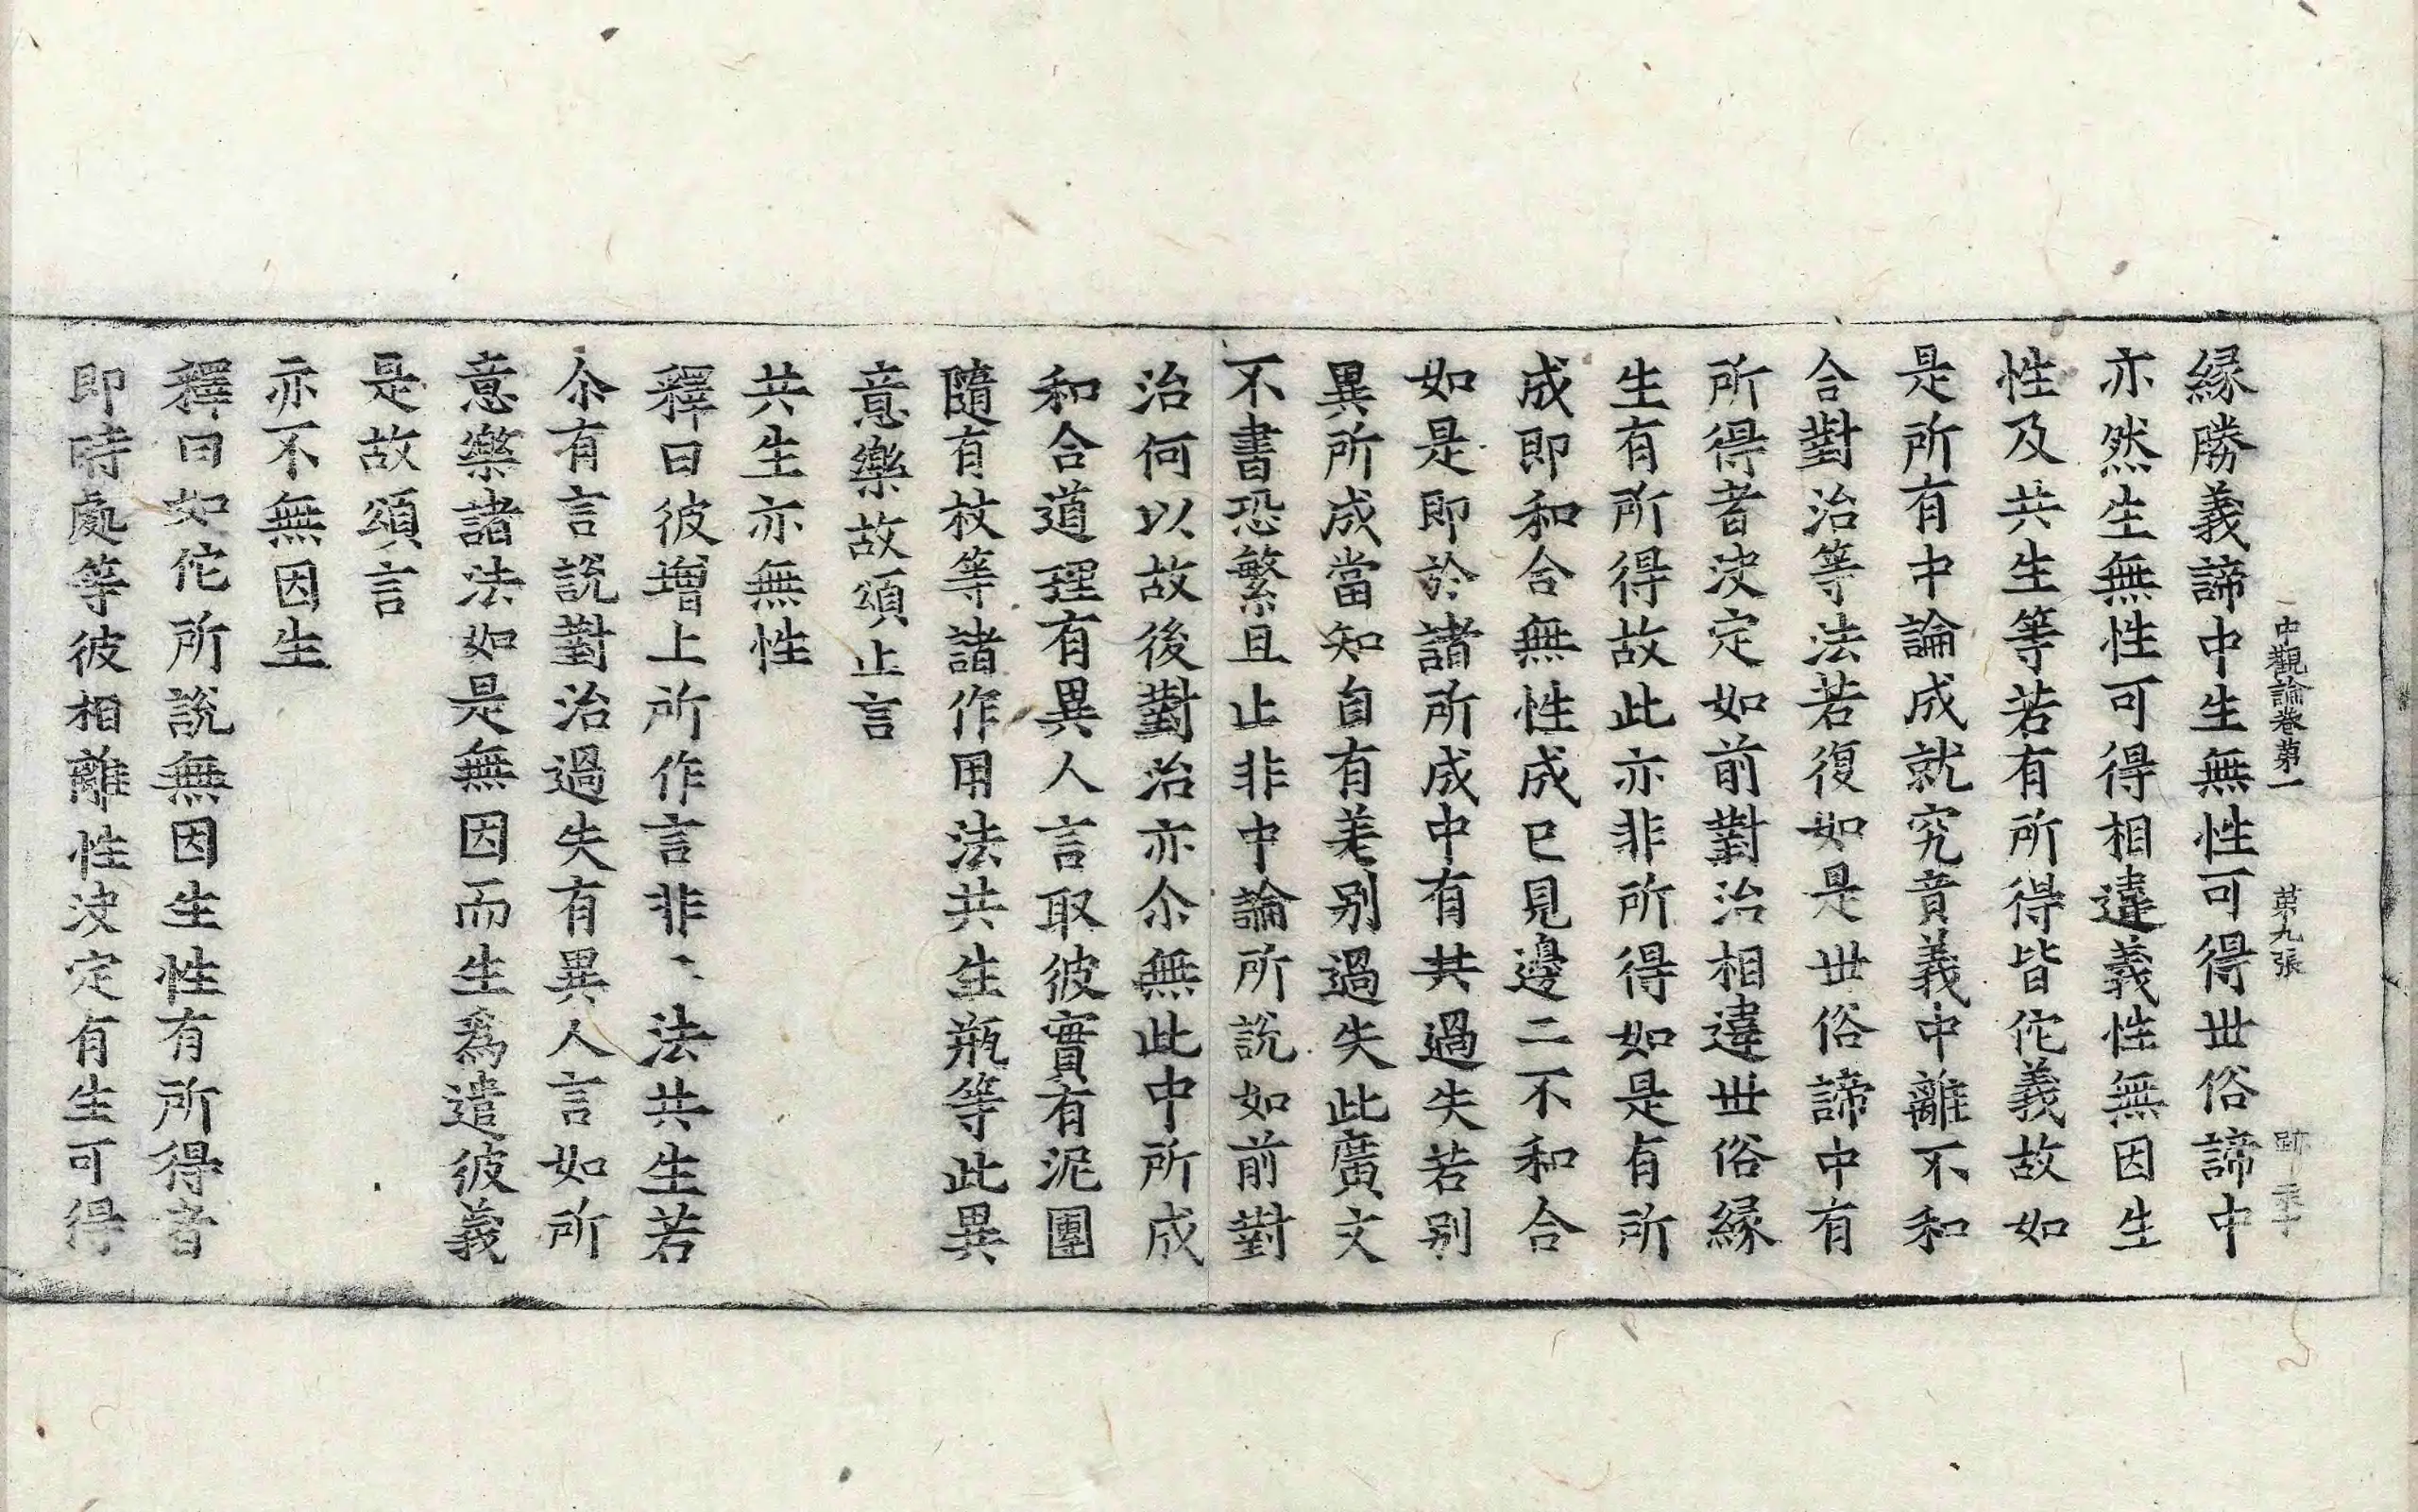 中觀論卷第一　第九張　跡
緣勝義諦中生無性可得世俗諦中
亦然生無性可得相違義性無因生
性及共生等若有所得皆佗義故如
是所有中論成就究竟義中離不和
合對治等法若復如是世俗諦中有
所得者決定如前對治相違世俗緣
生有所得故此亦非所得如是有所
成即和合無性成已見邊二不和合
如是即於諸所成中有共過失若別
異所成當知自有差別過失此廣文
不書恐繁且止非中論所說如前對
治何以故後對治亦尒無此中所成
和合道理有異人言取彼實有泥團
隨有杖等諸作用法共生瓶等此異
意樂故頌止言
共生亦無性
釋曰彼增上所作言非一法共生若
尒有言說對治過失有異人言如所
意樂諸法如是無因而生爲遣彼義
是故頌言
亦不無因生
釋曰如佗所說無因生性有所得者
即時處等彼相離性決定有生可得